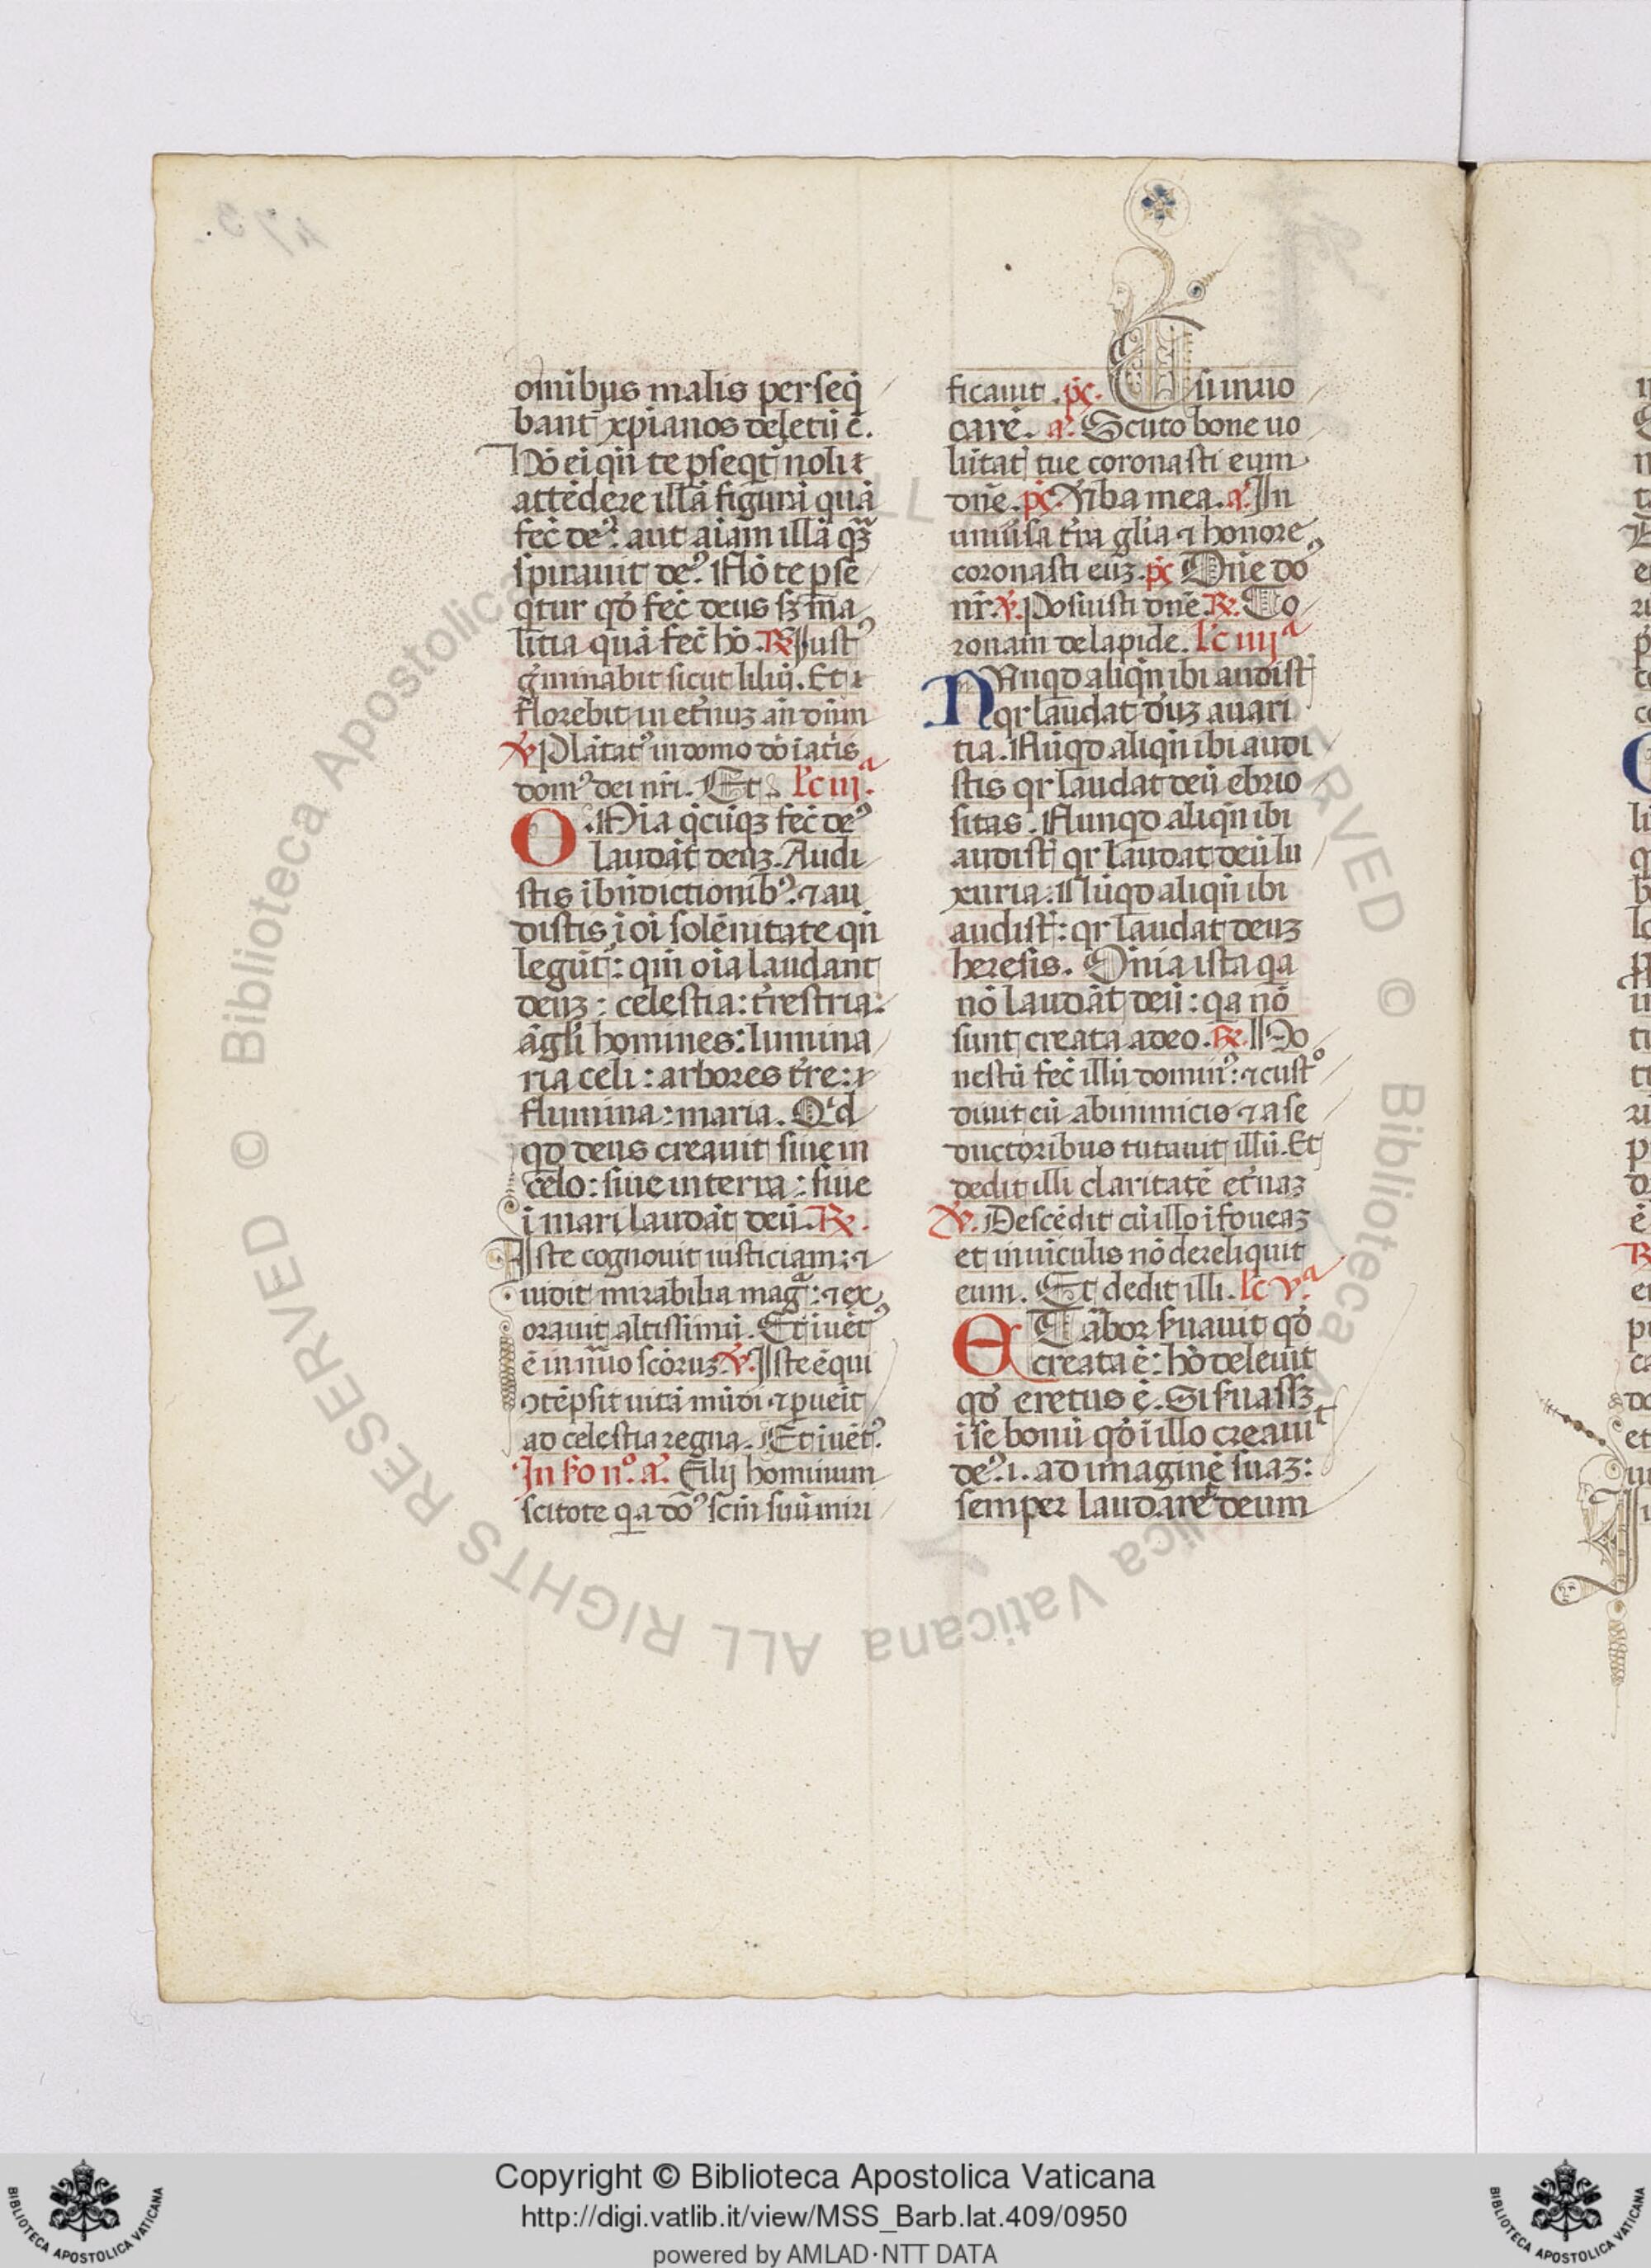 omibus malis perseq̇
bant᷑ xp̄ianos deletū ē.
Nō ei qn̄ te p̱seqt᷑ noli ⁊
attēdere illā figurā quā
fec̄ deꝰ: aut aīam illā quā
spirauit deꝰ. Nō te p̱se
qtur qď fec̄ deus sꝫ ma
litia quā fec̄ hō. ℟ Justꝰ
g̊minabit sicut liliū. Et ⁊
florebit in et̄nuꝫ an̄ dn̄m
℣ Plātatꝰ in domo dō iatr̄is
domꝰ dei nr̄i. Et. lc̄ iijᵃ.
O Mīa q̇cūqꝫ fec̄ deꝰ
laudāt deuꝫ. Audi
stis ī bn̄dictionibꝰ: ⁊ au
distis ī oī solēnitate qn̄
legūt᷑: qm̄ oīa laudant
deuꝫ: celestia: tr̄estria:
āgli homines: lumina
ria celi: arbores tr̄e: ⁊
flumina: maria. Qⁱd
qď deus creauit siue in
celo: siue in terra: siue
ī mari laudāt deū. ℟.
Iste cognouit iusticiam: ⁊
uidit mirabilia magᵃ: ⁊ ex
orauit altissimū. Et īuētꝰ
ē in nūo scōruꝫ ℣. Iste ē qui
ꝯtēpsit uitā mūdi ⁊ p̱ueīt
ad celestia regna. Et īuētꝰ.
In ẜo nº. a̅. Filij hominum
scitote qa dōꝰ scm̄ suū miri
ficauit. pͣs. Cū inuo
carē. a̅. Scuto bone uo
lūtat᷑ tue coronasti eum
dn̄e. pͣs. Ỽba mea. a̅. In
uniūsa tr̄ra glīa ⁊ honore
coronasti euꝫ. pͣs Dn̄e dōꝰ
nr̄. ℣. Posuisti dn̄e. ℟. Co
ronam de lapide. lc̄ iiijᵃ
NUnqď aliqn̄ ibi audist᷑
qr laudat d̄uꝫ auari
tia. Nūqď aliqn̄ ibi audi
stis qr laudat deū ebrio
sitas. Nunqď aliqn̄ ibi
audist᷑ qr laudat deū lu
xuria: Nūqď aliqn̄ ibi
audist᷑: qr laudat deuꝫ
heresis. Om̄ia ista qa
nō laudāt deū: qa nō
sunt creata a deo. ℟. Ho
nestū fec̄ illū dominꝰ: ⁊ custº
diuit eū ab inimicis ⁊ a se
ductoribus tutauit illū. Et
dedit illi claritatē et̄naꝫ
℣. Descēdit cū illo ī foueaꝫ
et in uīculis nō dereliquit
eum. Et dedit illi. lc̄ vᵃ.
ET ābor ẜuauit qď
creata ē: hō deleuit
qď eretus ē. Si ẜuassꝫ
ī se bonū qď ī illo creauiᵗ
deꝰ. i. ad imaginē suaꝫ:
semper laudareᵗ deum
Copyright © Biblioteca Apostolica Vaticana
http://digi.vatlib.it/view/MSS_Barb.lat.409/0950
powered by AMLAD·NTT DATA